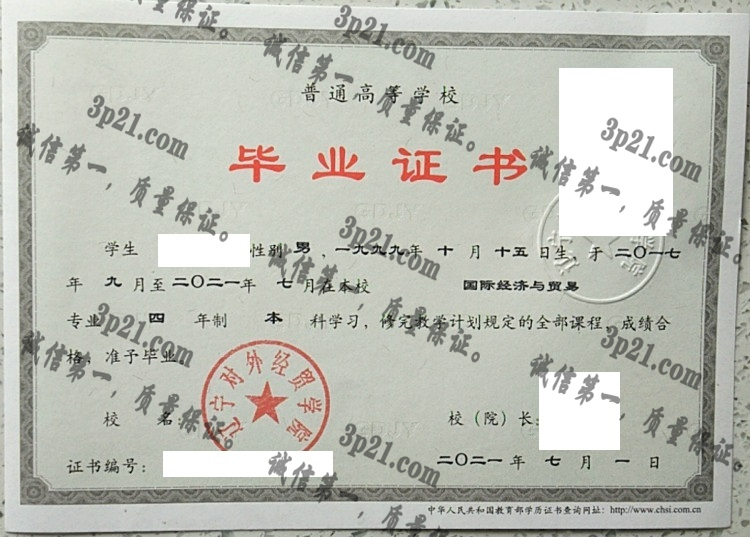 普通高等学校
毕业证书
学生 性别 男，一九九九年 十 月 十五日生，于 二〇一七
年 九 月至 二〇二一年 七 月在本校 国际经济与贸易
专业 四 年制 本 科学习，修完教学计划规定的全部课程，成绩合
格，准予毕业。
辽宁对外经贸学院
校 名： 校（院）长：
证书编号： 二〇二一 年 七 月 一 日
中华人民共和国教育部学历证书查询网址：http://www.chsi.com.cn
3p21.com
诚信第一，质量保证。
3p21.com
诚信第一，质量保证。
3p21.com
诚信第一，质量保证。
3p21.com
诚信第一，质量保证。
3p21.com
诚信第一，质量保证。
3p21.com
诚信第一，质量保证。
3p21.com
诚信第一，质量保证。
3p21.com
诚信第一，质量保证。